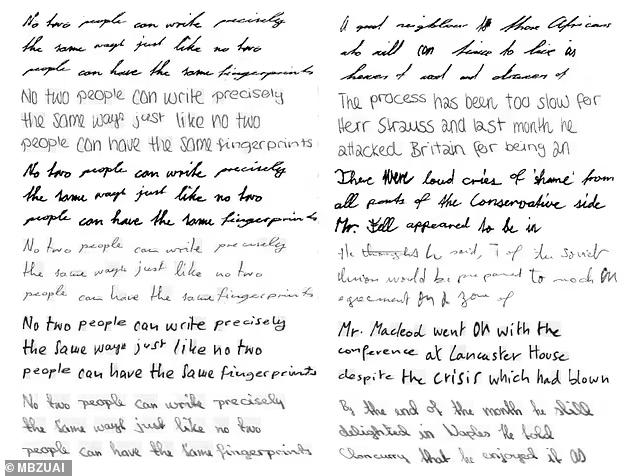 No two people can write precisely
the same ways just like no two
people can have the same fingerprints
No two people can write precisely
the same ways just like no two
people can have the same fingerprints
No two people can write precisely
the same ways just like no two
people can have the same fingerprints
No two people can write precisely
the same ways just like no two
people can have the same fingerprints
No two people can write precisely
the same ways just like no two
people can have the same fingerprints
No two people can write precisely
the same ways just like no two
people can have the same fingerprints
A good neighbour those Africans
who will to live as
hewers of and drawers of
The process has been too slow for
Herr Strauss and last month he
attacked Britain for being an
There were loud cries of 'shame' from
all parts of the Conservative side
Mr. appeared to be in
He he said, of the Soviet
Union would be prepared to reach an
agreement on a zone of
Mr. Macleod went on with the
conference at Lancaster House
despite the crisis which had blown
By the end of the month he still
delighted in Naples he told
Cloncurry that he enjoyed it as
© MBZUAI